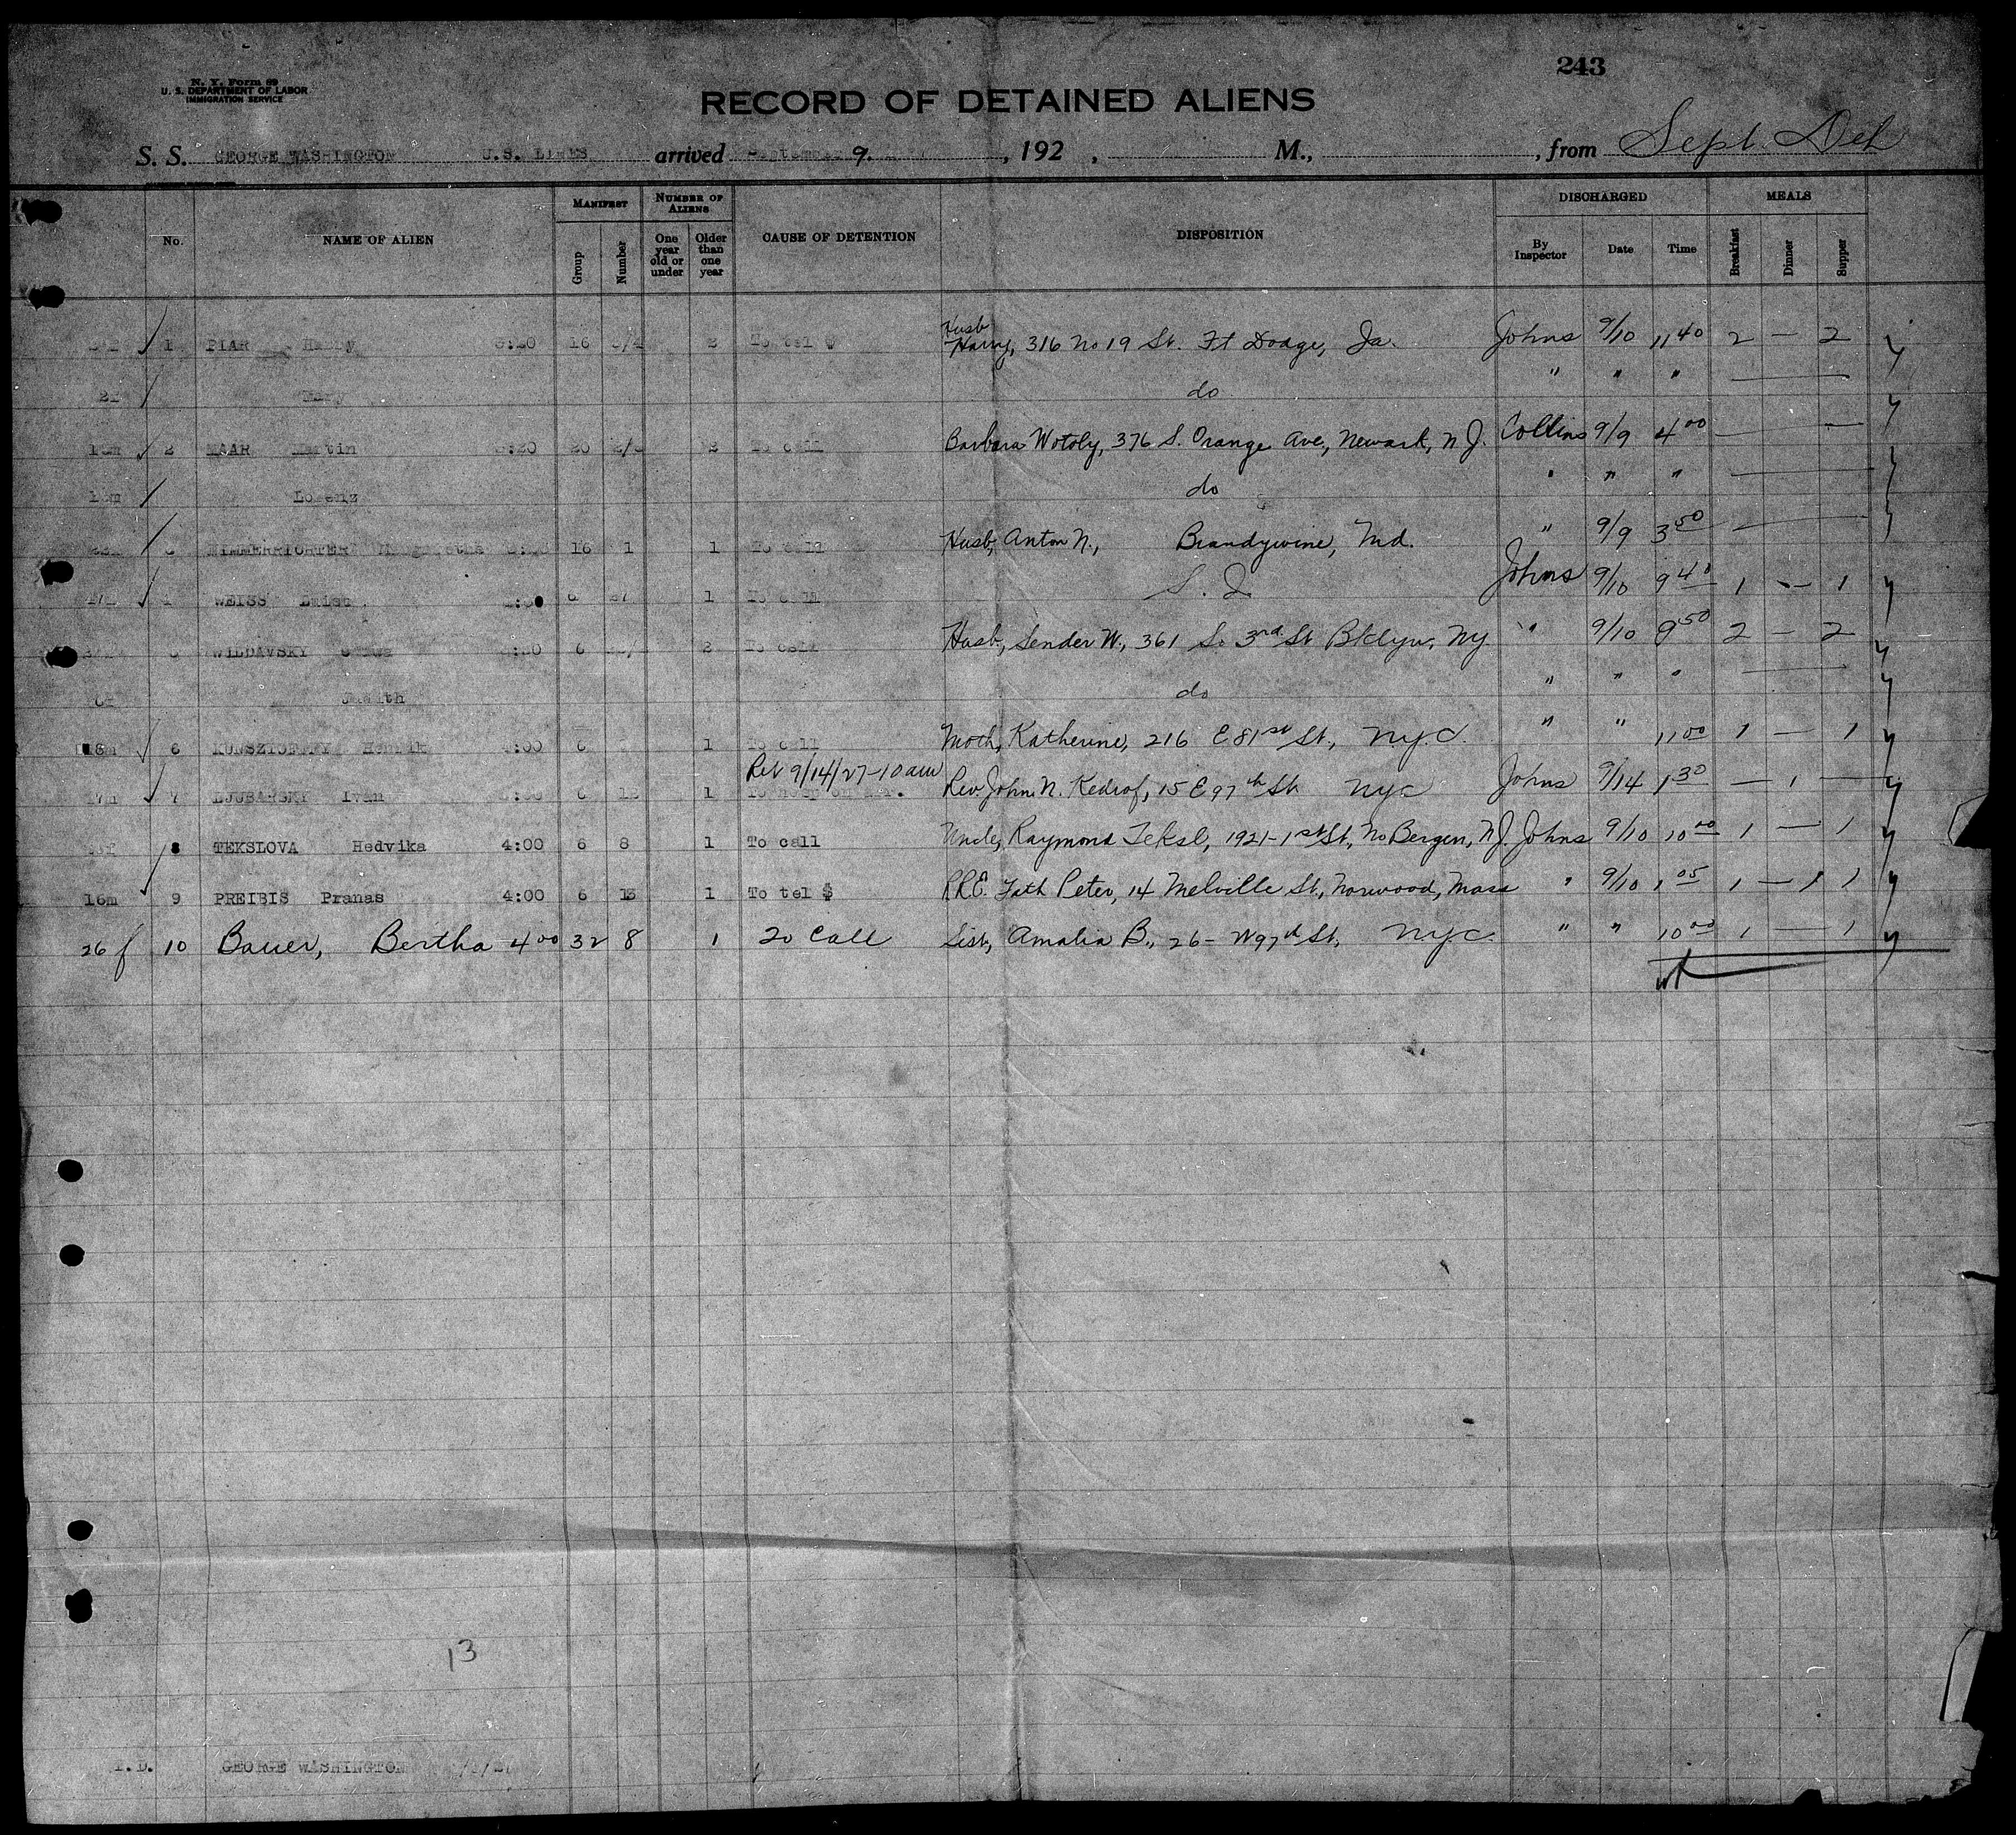 243
N. Y. Form 69
U. S. DEPARTMENT OF LABOR
IMMIGRATION SERVICE
RECORD OF DETAINED ALIENS
S. S. GEORGE WASHINGTON U.S. LINES arrived September 9. , 192 , M., , from Sept. Deh
No. NAME OF ALIEN MANIFEST Group Number NUMBER OF ALIENS One year old or under Older than one year CAUSE OF DETENTION DISPOSITION DISCHARGED By Inspector Date Time MEALS Breakfast Dinner Supper
Husb
1 PIAR 16 2 To tel $ Harry, 316 No 19 St. Ft Dodge, Ia. Johns 9/10 11 40 2 — 2 y
Mary do " " " — y
2 MAAR Martin 20 2 To call Barbara Wotoly, 376 S. Orange Ave, Newark, N J. Collins 9/9 4 00 — — y
Lorenz do " " " — y
16 1 1 To call Husb, Anton N., Brandywine, Md. " 9/9 3 50 — y
WEISS 1 To call S. I Johns 9/10 9 40 1 — 1 y
WILDAVSKY 6 2 To call Husb, Sender W., 361 So 3rd St Bklyn, NY " 9/10 9 50 2 — 2 y
Judith do " " " — y
16m 6 6 1 To call Moth, Katherine, 216 E 81st St., N.Y.C. " " 11 00 1 — 1 y
Ret 9/14/27-10 am
17m 7 LJUBARSKY Ivan 6 1 Rev John N. Kedrof, 15 E 97th St NYC Johns 9/14 1 30 — 1 — y
8 TEKSLOVA Hedvika 4:00 6 8 1 To call Uncle, Raymond Teksl, 1921-1st St, No Bergen, N.J. Johns 9/10 10 00 1 — 1 y
16m 9 PREIBIS Pranas 4:00 6 13 1 To tel $ RRE. Fath Peter, 14 Melville St., Norwood, Mass " 9/10 1 05 1 — 1 1 y
26 f 10 Bauer, Bertha 4 00 32 8 1 To Call Sist, Amalia B., 26 - W 97th St, N.Y.C. " " 10 00 1 — 1 y
13
GEORGE WASHINGTON